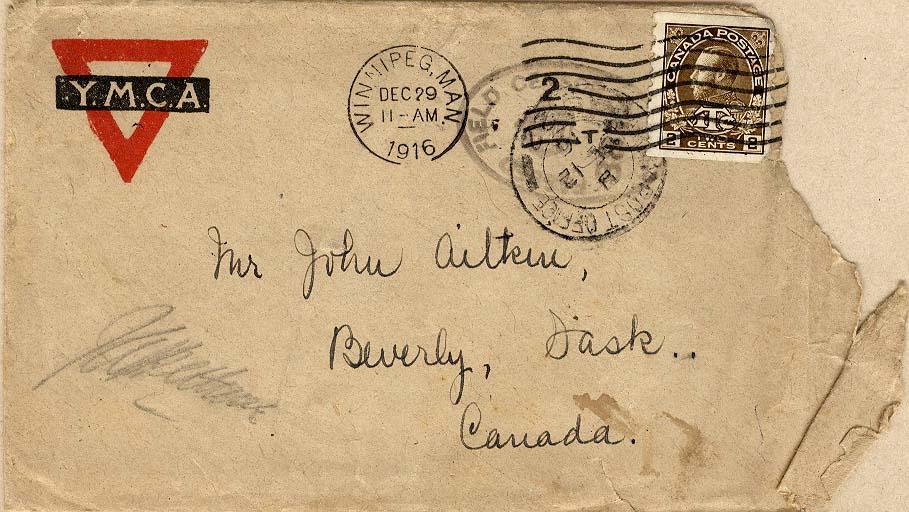 Y.M.C.A
WINNIPEG, MAN
DEC 29
11-AM
1916
FIELD
2
POST OFFICE
CANADA POSTAGE
2 CENTS 2
Mr John Aitken,
Beverly, Sask..
Canada.